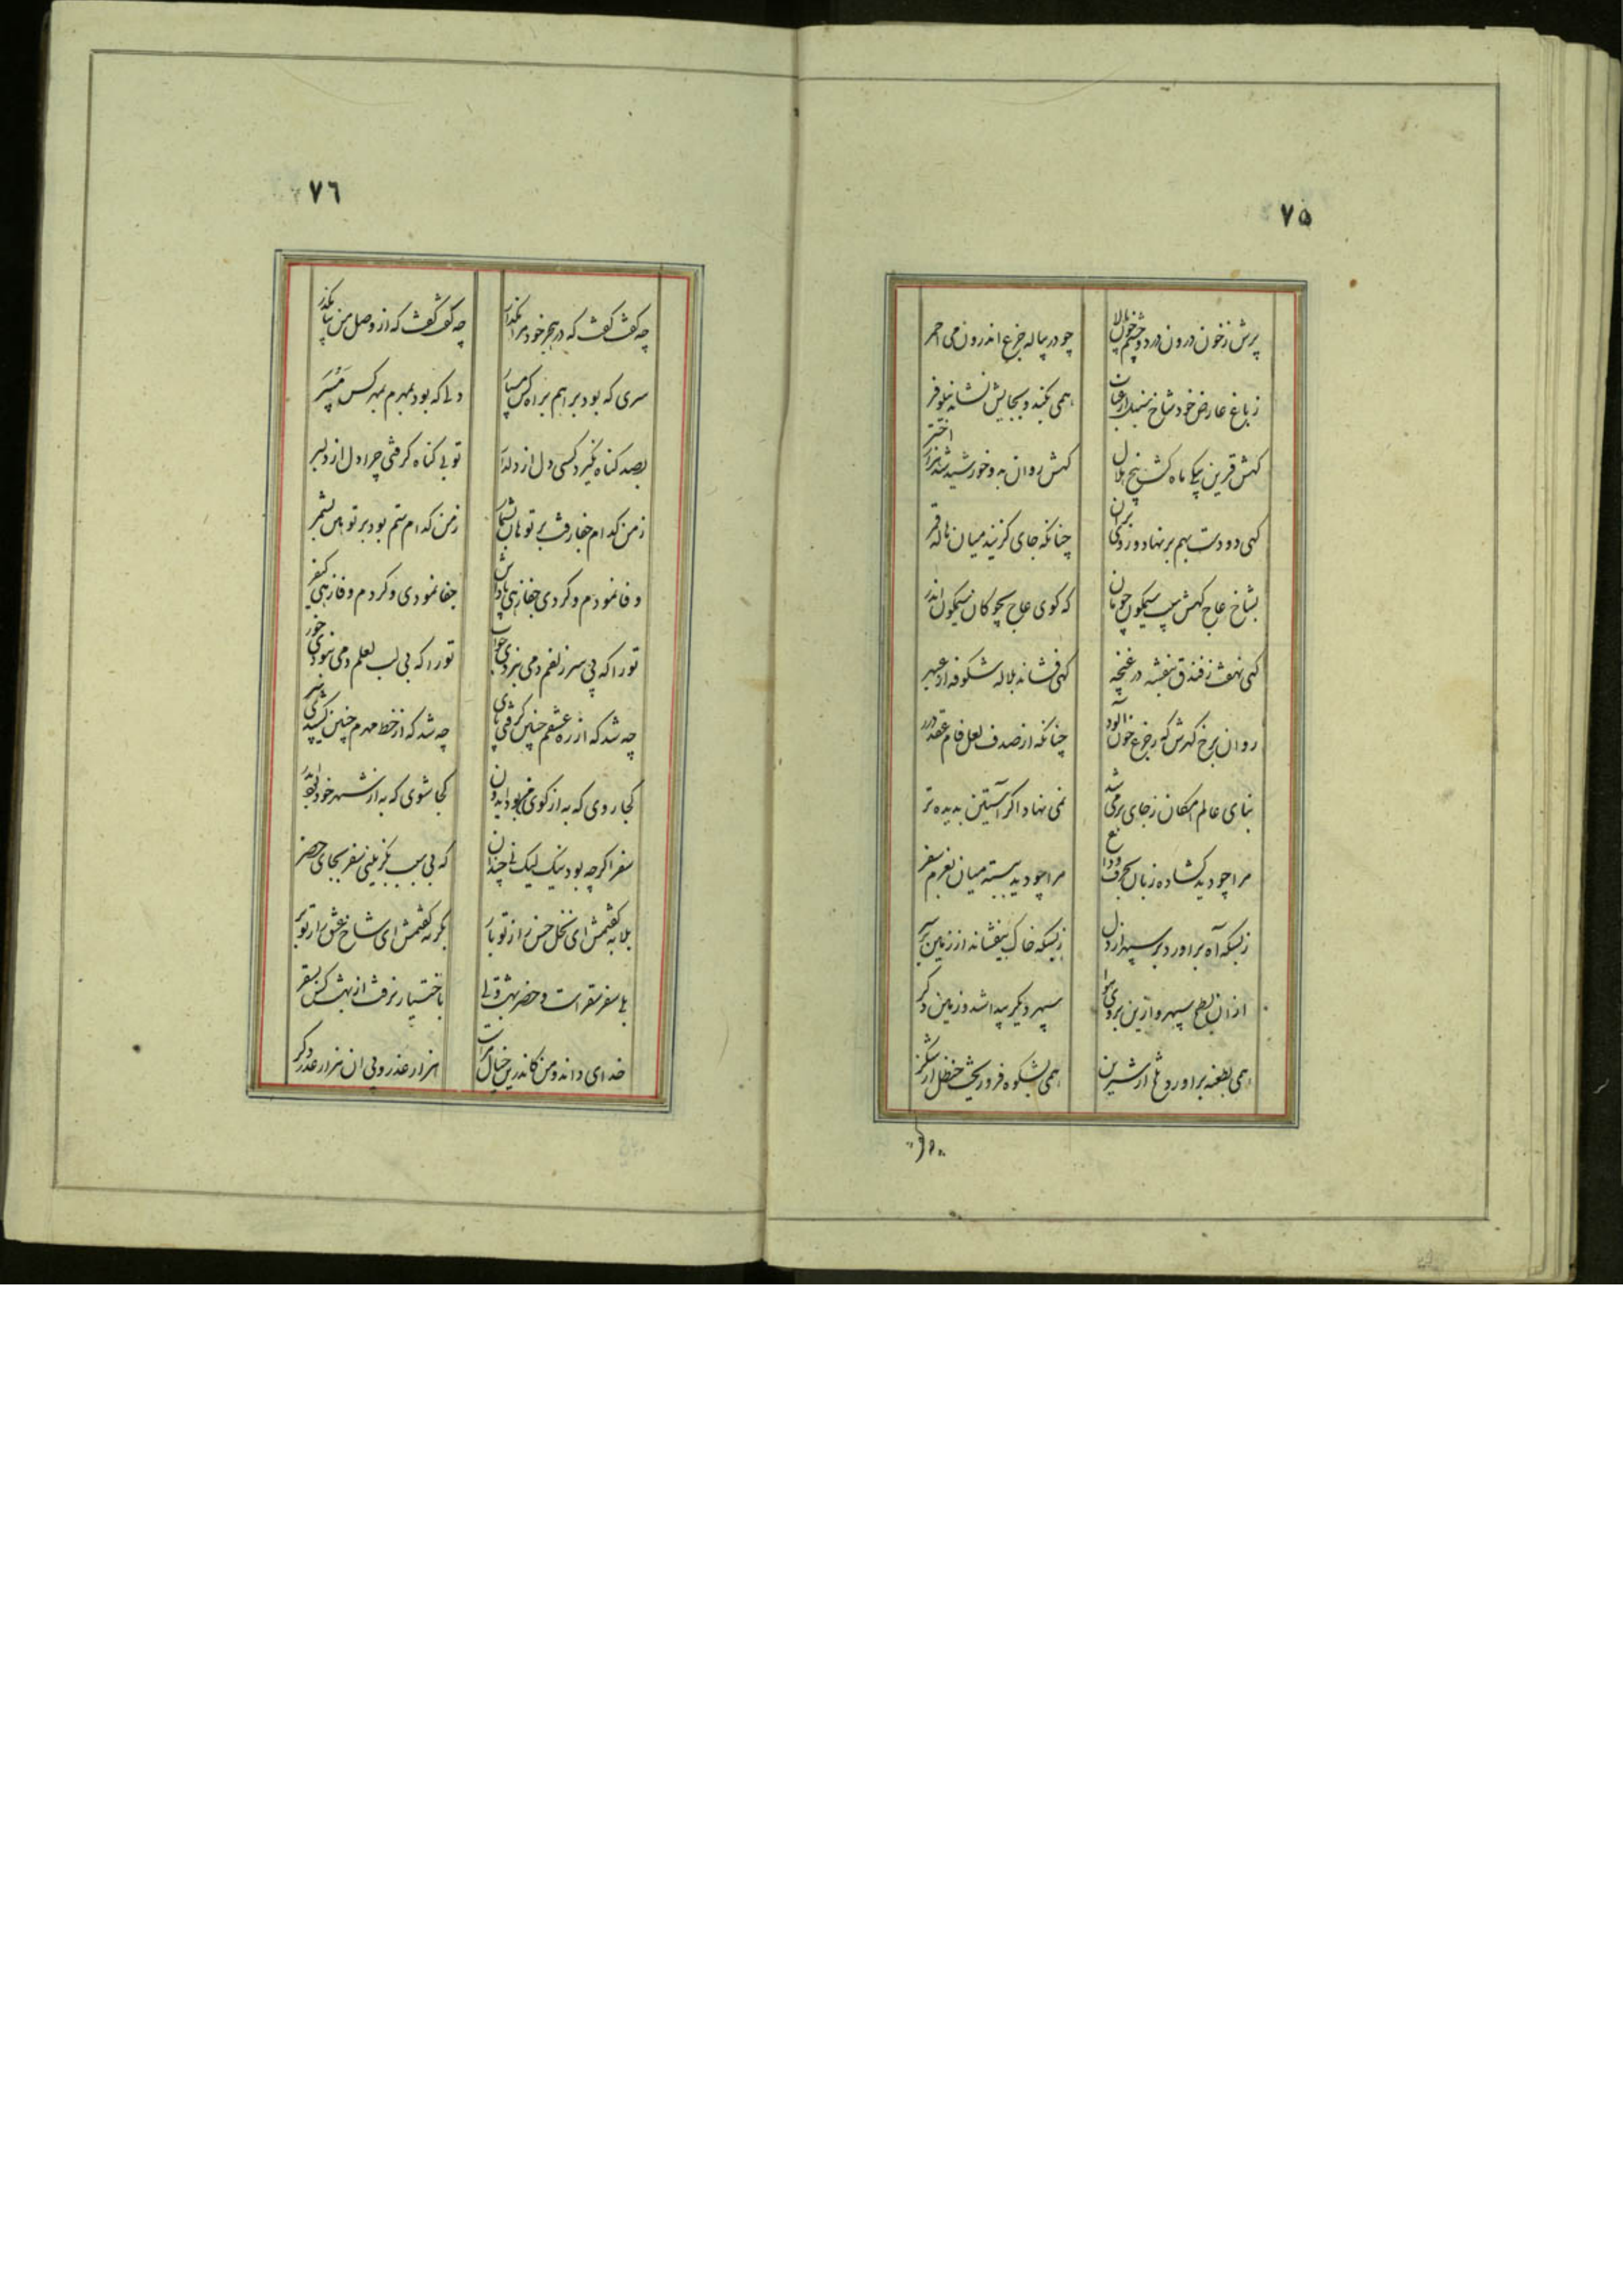 ٧۵
پرش ز خون درون در دو چشم
چو در پیاله جزع اندرون می احمر
ز باغ عارض خود شاخ سنبل ارغوان
همی بکند و بجایش نشاند نیلوفر
کهش قرین یکی ماه کشت پنج هلال
کهش روان بدو خورشید شد هزار اختر
کهی دو دست بهم بر نهاد و زد بران
چنانکه جای کزیند میان هاله قمر
بشاخ عاج کهش سیب سیمکون چونان
که کوی عاج بچوکان سیمکون اندر
کهی نهفت ز فندق بنفشه در غنچه
کهی فشاند بلاله شکوفه از عبهر
روان برخ کهرش که ز جزع خون آلود
چنانکه از صدف لعل فام عقد درر
بنای عالم امکان ز جای بر می شد
نمی نهاد اکر آستین بدیده تر
مرا چو دید کشاده زبان بحرف وداع
مرا چو دید ببسته میان بعزم سفر
ز بسکه آه براورد بر سپهر از دل
ز بسکه خاک بیفشاند از زمین بر سر
ازان بطح سپهر و ازین بروی هوا
سپهر دیکر پیدا شد و زمین دکر
همی بطعنه براورد از شیرین
همی بشکوه فرو ریخت حنظل از شکر
٧٦
چه کفت کفت که در هجر خود مرا مکذار
چه کفت کفت که از وصل من بیا بکذر
سری که بود براهم براه کس مسپار
دلی که بود بمهرم بمهر کس مسپر
بصد کناه نکیرد کسی دل از دلدار
تو بی کناه کرفتی چرا دل از دلبر
ز من کدام خفا رفت بر تو هان بشمار
ز من کدام ستم بود بر تو هین بشمر
وفا نمودم و کردی جفا زهی پاداش
جفا نمودی و کردم وفا زهی کیفر
تو را که بی سر زلفم دمی نبردی خواب
تو را که بی لب لعلم دمی نبودی خور
چه شد که از ره عشقم چنین کرفتی پای
چه شد که از خط مهرم چنین کشیدی سر
کجا روی که به از کوی من بود ایدون
کجا شوی که به از شهر خود بود ایدر
سفر اکرچه بود نیک لیک نی چندان
که بی سبب بکزینی سفر بجای حضر
بلابه کفتمش ای نخل حسن را از تو بار
بکریه کفتمش ای شاخ عشق را از تو بر
بلی سفر سقر است و حضر بهشت ولی
باختیار نرفت از بهشت کس بسقر
خدای داند و من کاندرین خیال مرا
هزار عذر و بی ان هزار عذر دکر